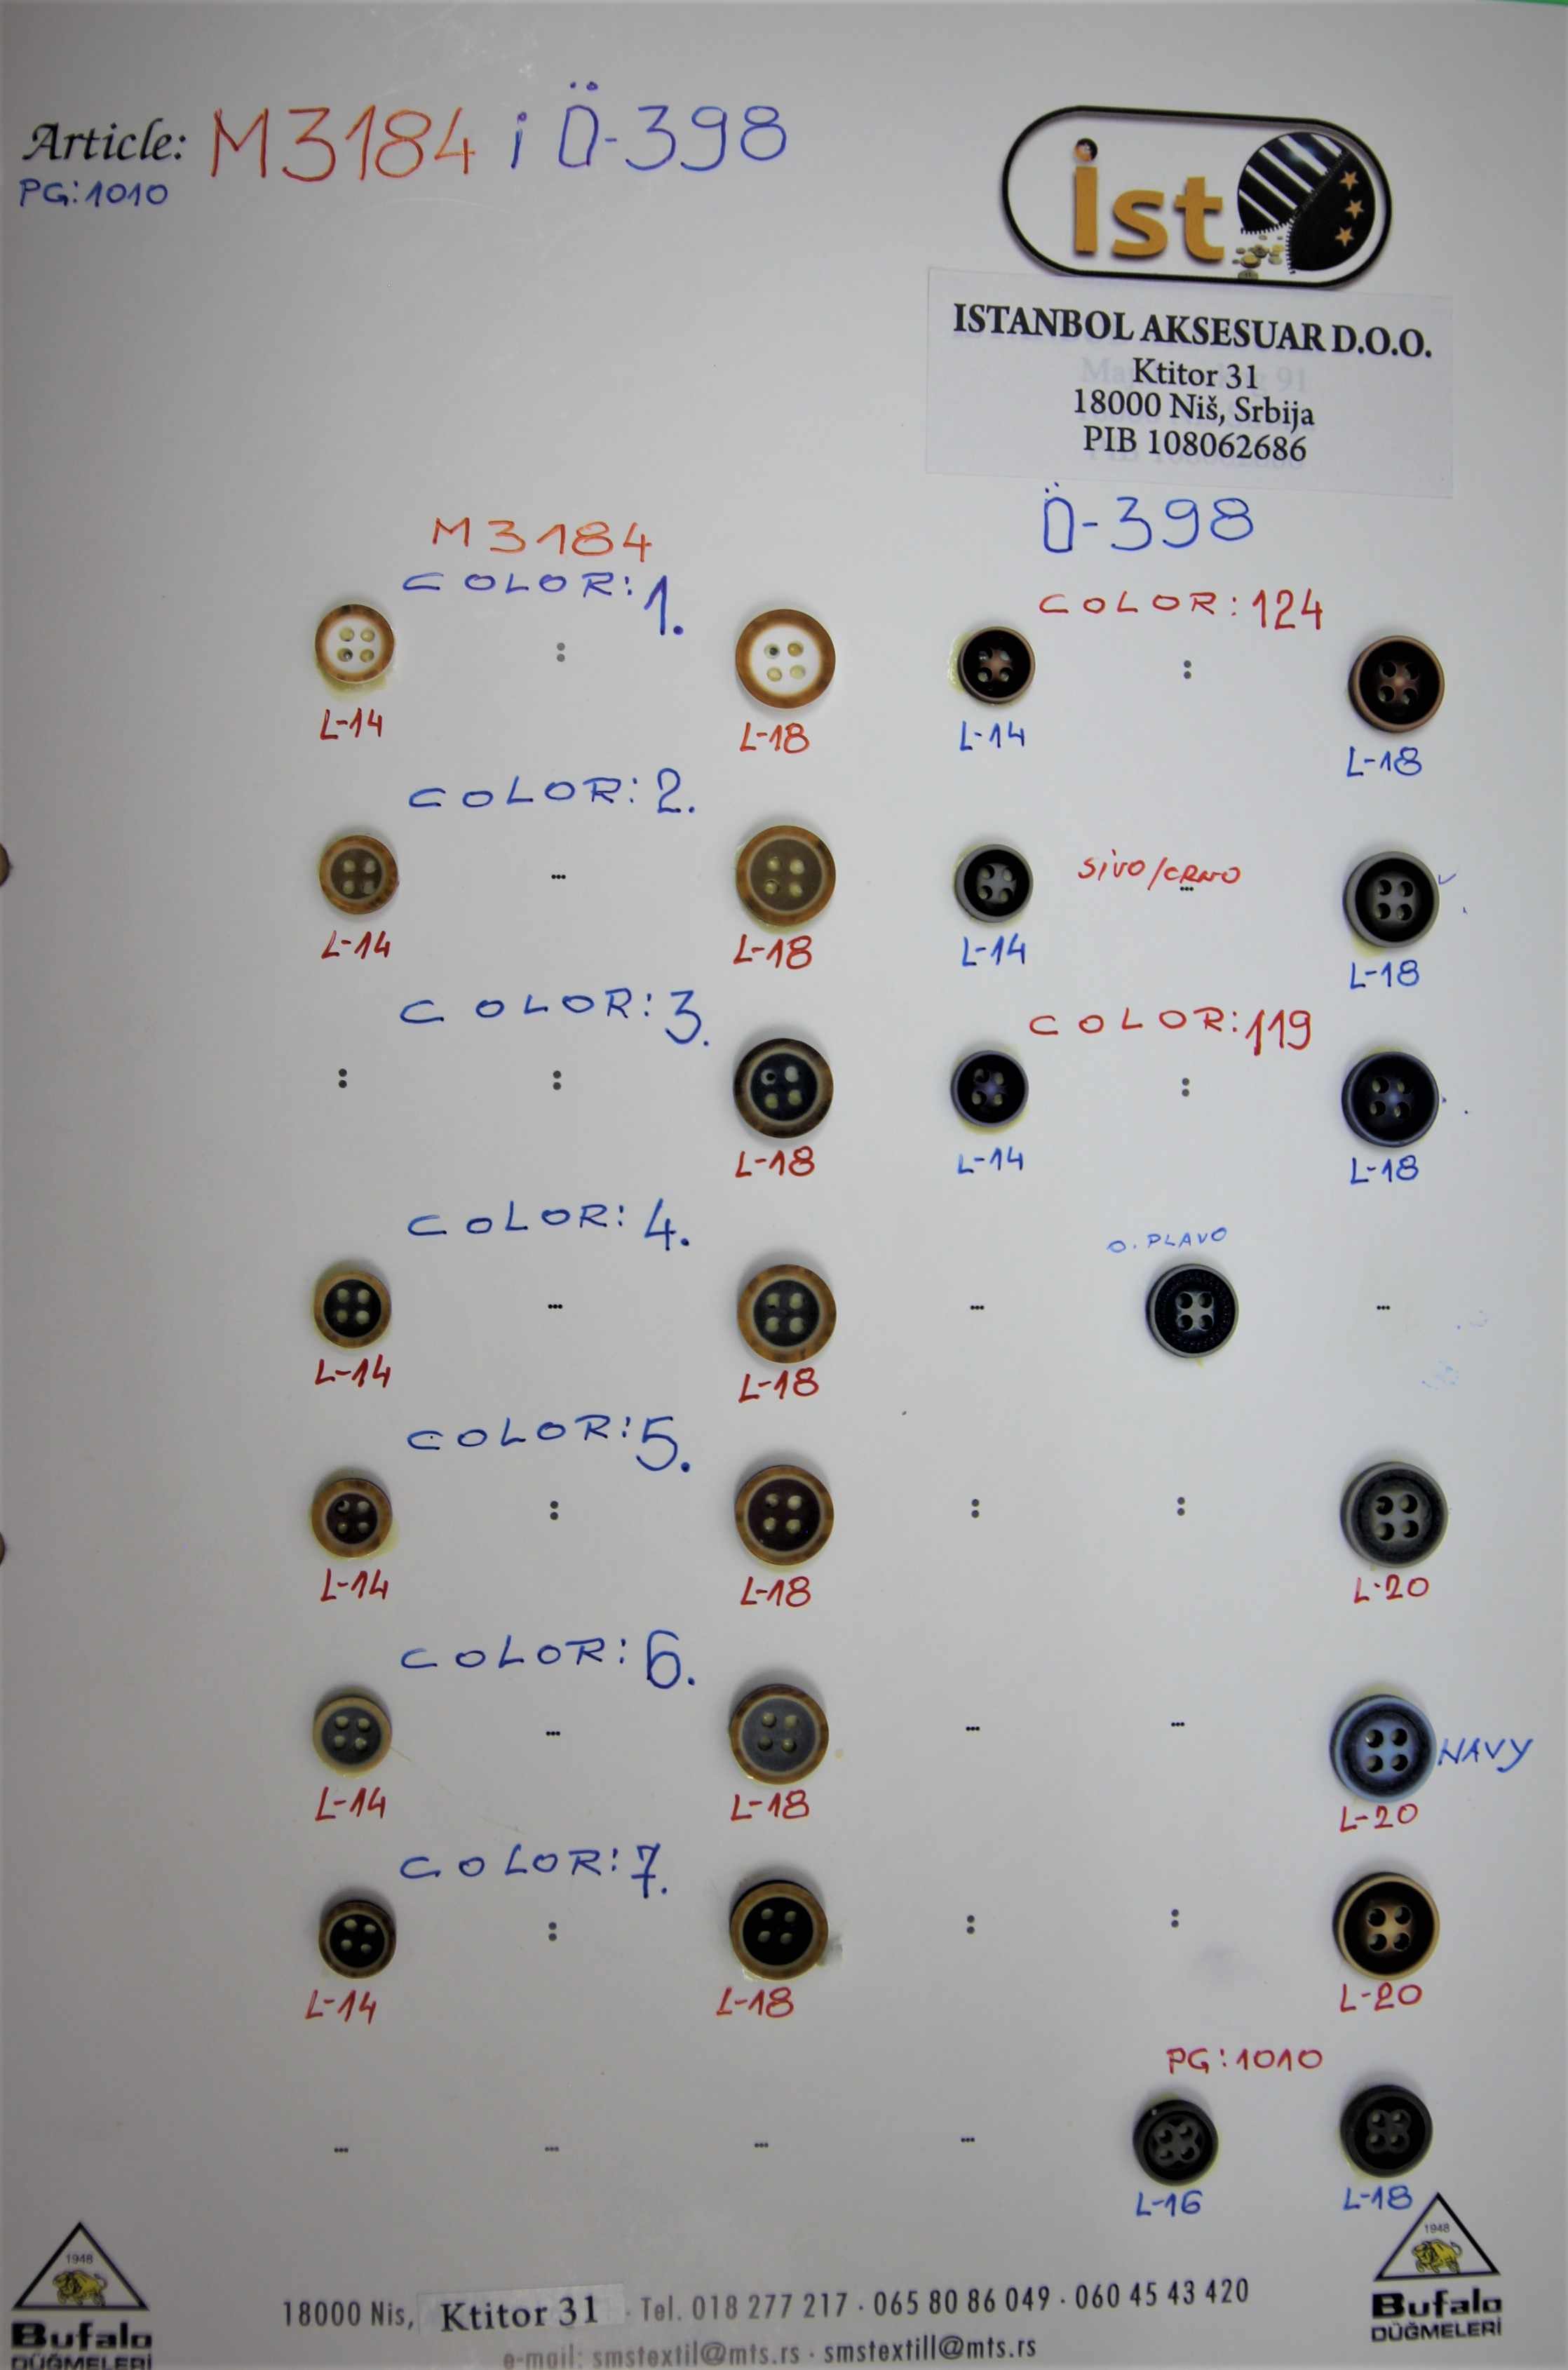 Article: M3184 i Ö-398
PG:1010
ist
ISTANBOL AKSESUAR D.O.O.
Ktitor 31
18000 Niš, Srbija
PIB 108062686
M3184
Ö-398
COLOR: 1.
COLOR: 124
L-14
L-18
L-14
L-18
COLOR: 2.
SIVO/CRNO
L-14
L-18
L-14
L-18
COLOR: 3.
COLOR: 119
L-18
L-14
L-18
COLOR: 4.
O. PLAVO
L-14
L-18
COLOR: 5.
L-14
L-18
L-20
COLOR: 6.
NAVY
L-14
L-18
L-20
COLOR: 7.
L-14
L-18
L-20
PG:1010
L-16
L-18
1948
Bufalo
DÜĞMELERİ
1948
Bufalo
DÜĞMELERİ
18000 Nis, Ktitor 31 · Tel. 018 277 217 · 065 80 86 049 · 060 45 43 420
e-mail: smstextil@mts.rs · smstextill@mts.rs